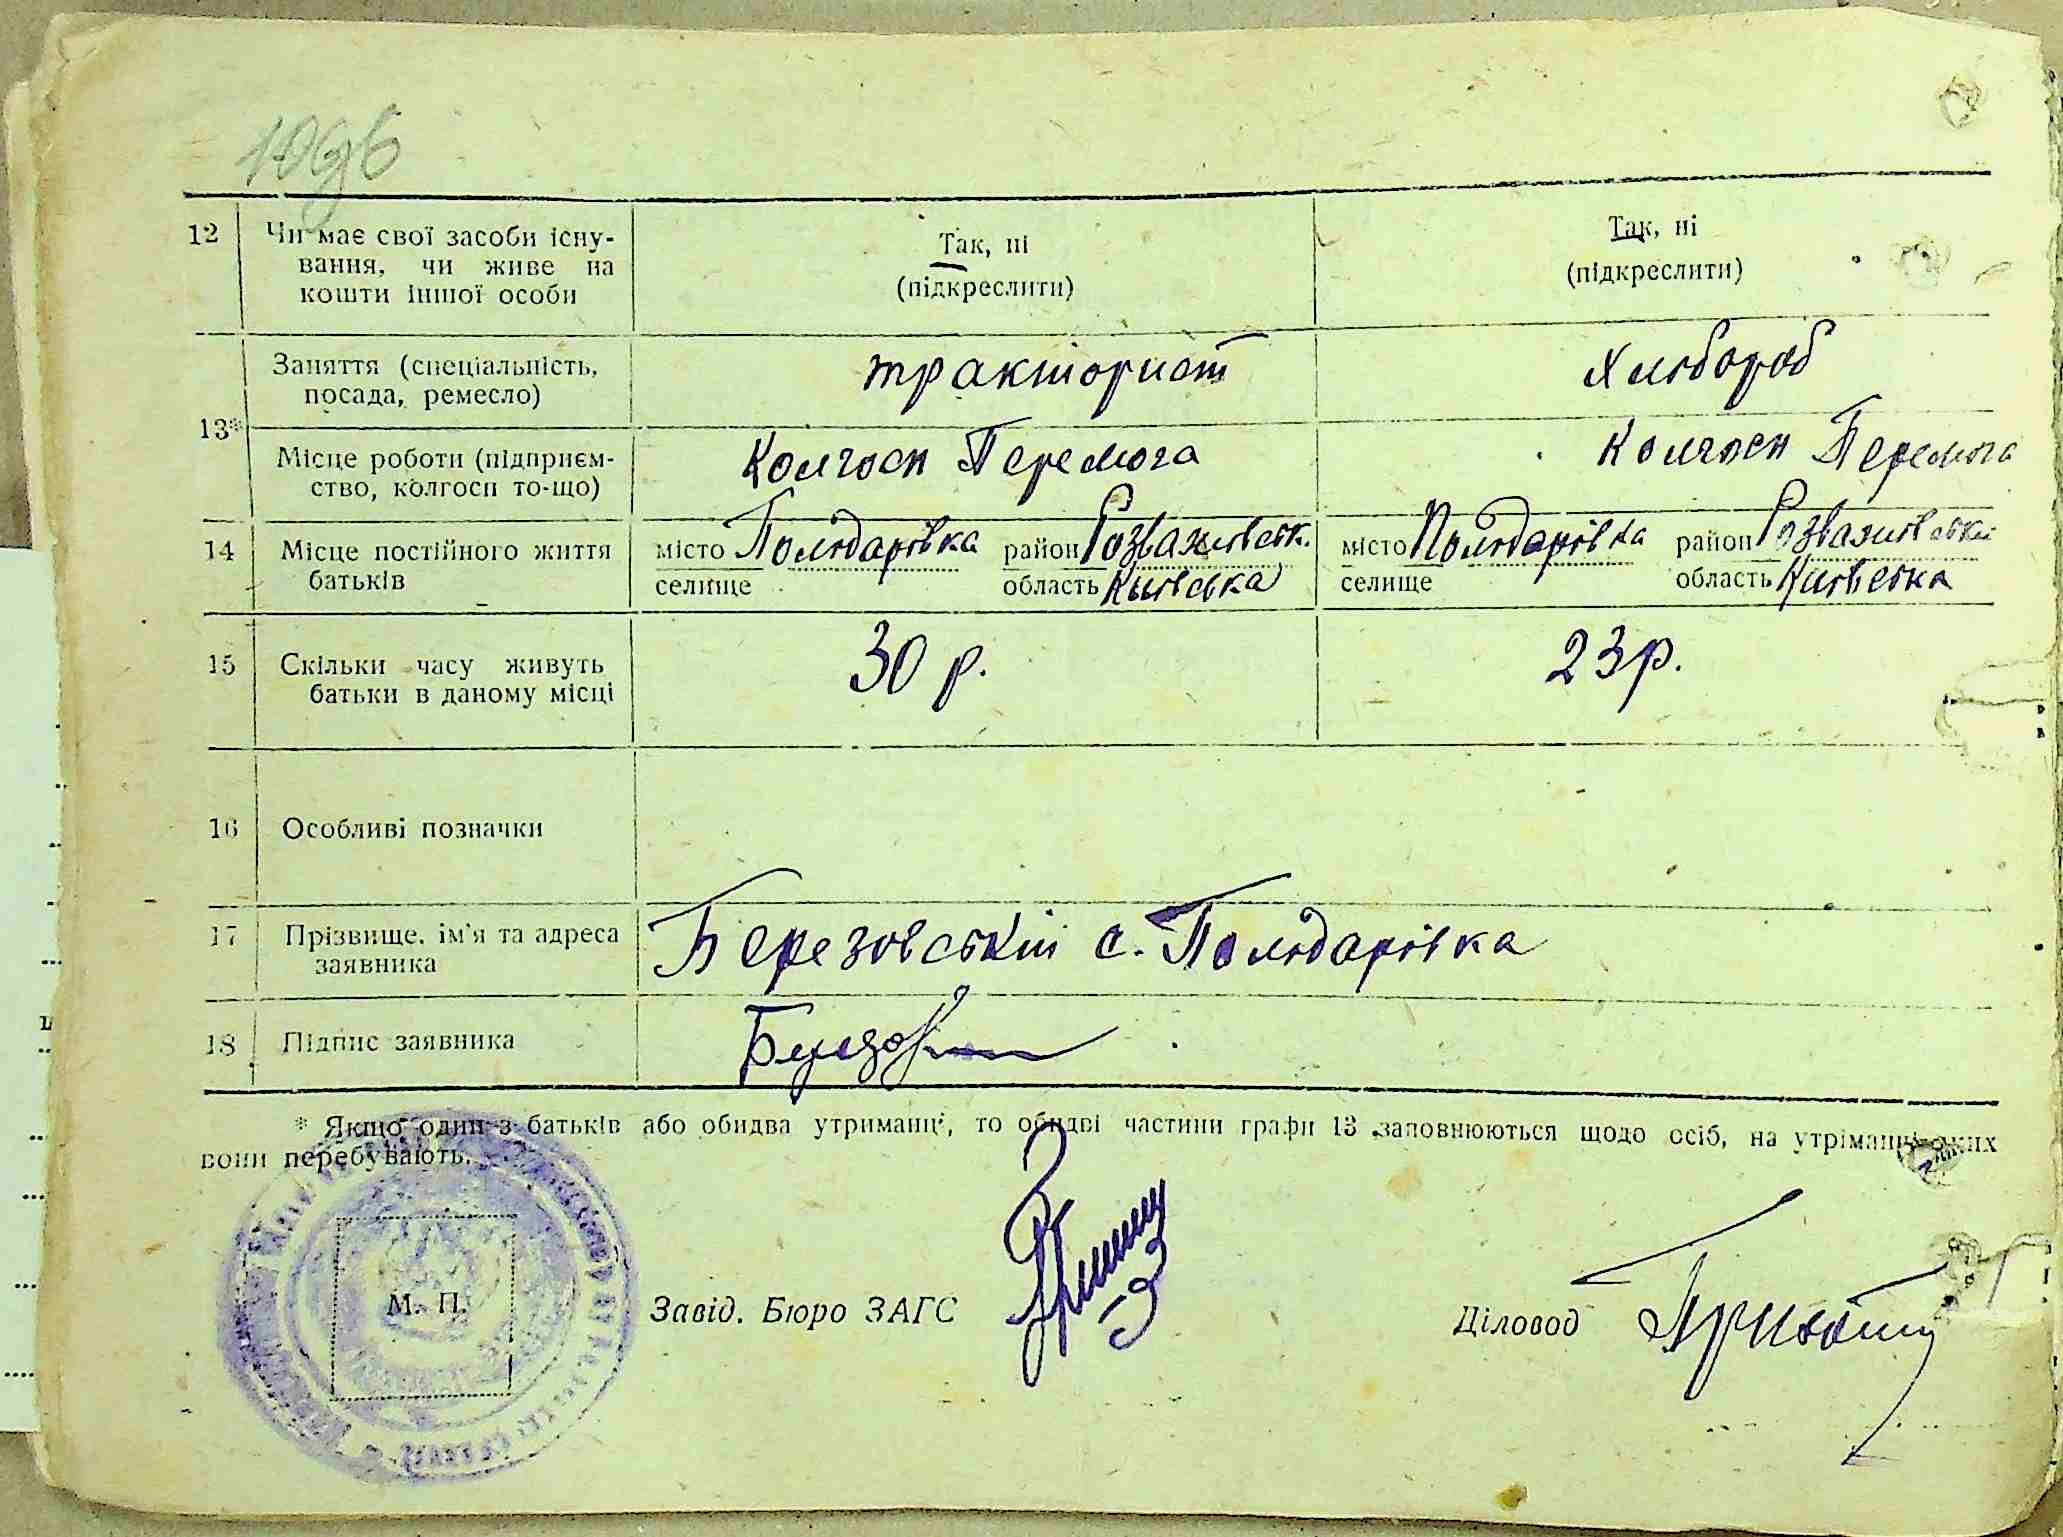 12 Чи має свої засоби існу- Так, ні Так, ні
вання, чи живе на (підкреслити) (підкреслити)
кошти іншої особи
13* Заняття (спеціальність, тракторист хлібороб
посада, ремесло)
Місце роботи (підприєм- Колгосп Перемога Колгосп Перемога
ство, колгосп то-що)
14 Місце постійного життя місто Полюдарівка район Розважівськ. місто Полюдарівка район Розважівськ
батьків селище область Київська селище область Київська
15 Скільки часу живуть 30 р. 23 р.
батьки в даному місці
16 Особливі позначки
17 Прізвище, ім'я та адреса Березовський с. Полюдарівка
заявника
18 Підпис заявника
* Якщо один з батьків або обидва утриманці, то обидві частини графи 13 заповнюються щодо осіб, на утріманні яких
вони перебувають.
М. П. Завід. Бюро ЗАГС Діловод